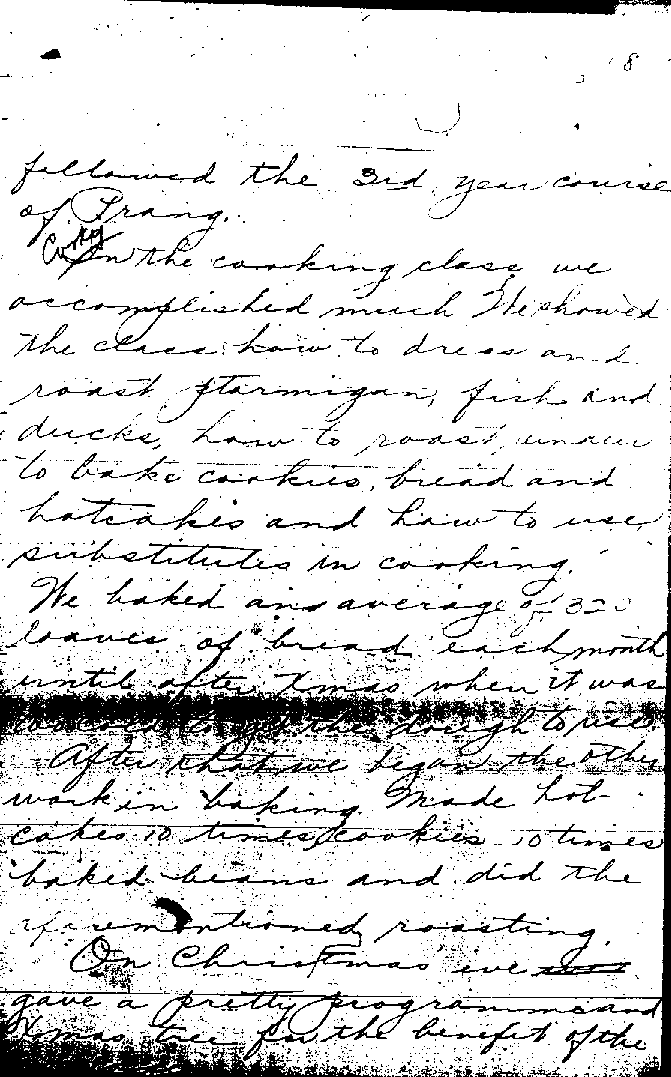 8
followed the 3rd year course
of Prang.
In the cooking class we
accomplished much We showed
the class how to dress and
roast ptarmigan, fish and
ducks, how to roast,
to bake cookies, bread and
hotcakes and how to use
substitutes in cooking.
We baked an average of 320
loaves of bread each month
until after Xmas when it was
too cold to get the dough to rise
After that we began the other
work in baking. Made hot
cakes 10 times, cookies 10 times
baked beans and did the
aforementioned roasting.
On Christmas eve
gave a pretty programme and
Xmas tree for the benefit of the